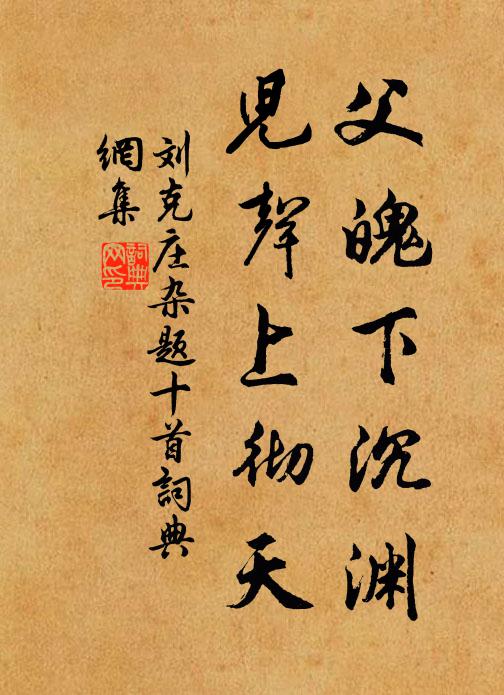 父魄下沉渊
兒聲上彻天
刘克庄杂题十首詞典
網集
詞典
网印